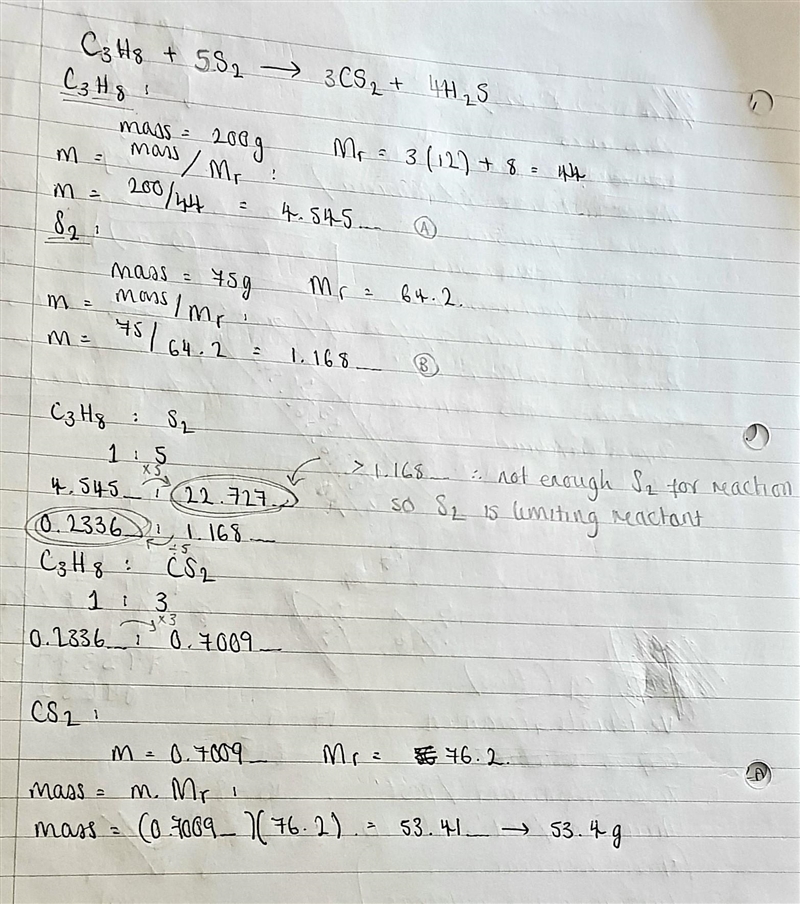 C3H8 + 5S2 → 3CS2 + 4H2S
C3H8 :
mass = 200g Mr = 3(12) + 8 = 44
m = mass/Mr :
m = 200/44 = 4.545... Ⓐ
S2 :
mass = 75g Mr = 64.2.
m = mass/Mr :
m = 75/64.2 = 1.168... Ⓑ
C3H8 : S2
1 : 5
×5
4.545... : 22.727... > 1.168... ∴ not enough S2 for reaction
so S2 is limiting reactant
0.2336... : 1.168...
÷5
C3H8 : CS2
1 : 3
×3
0.2336... : 0.7009...
CS2 :
m = 0.7009... Mr = 76.2.
mass = m.Mr :
mass = (0.7009...)(76.2) = 53.41... → 53.4g